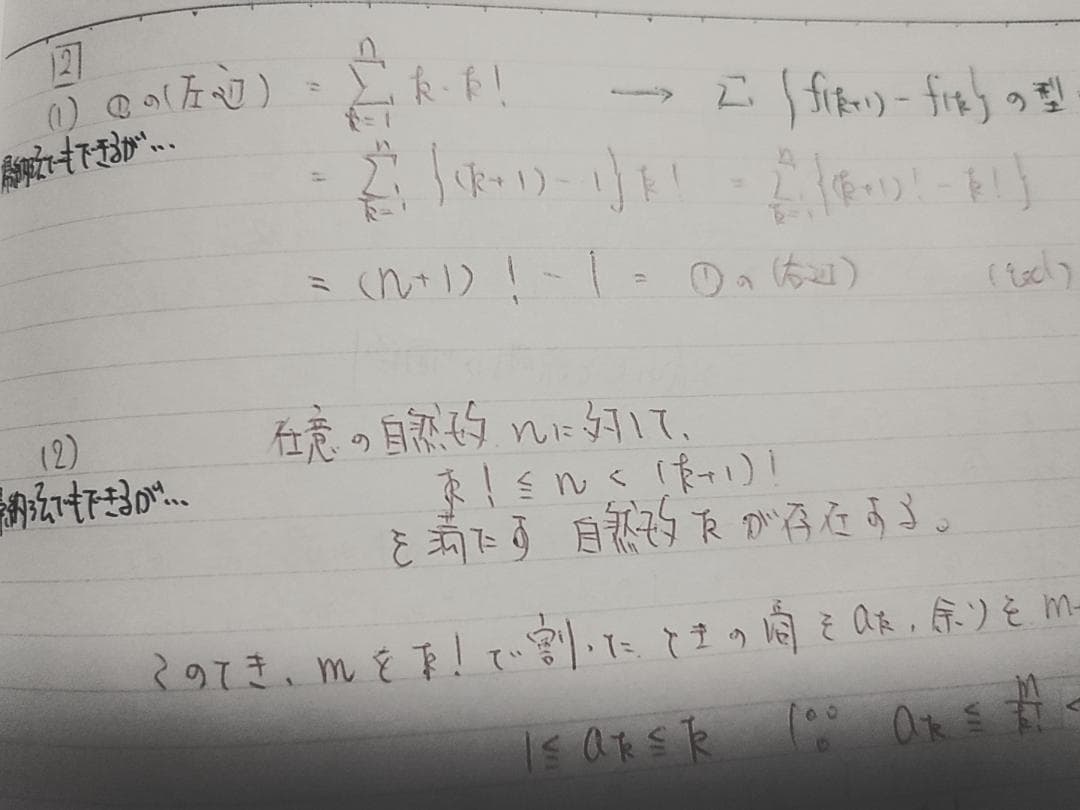 2
(1) ①の(左辺) = \sum_{k=1}^{n} k・k! → Σ{f(k+1) - f(k)}の型
帰納法でもできるが…
= \sum_{k=1}^{n} {(k+1) - 1} k! = \sum_{k=1}^{n} {(k+1)! - k!}
= (n+1)! - 1 = ①の(右辺)
(2) 任意の自然数 nに対して、
k! ≦ n < (k+1)!
納法でもできるが…
を満たす 自然数 kが存在する。
このとき、mをk!で割ったときの商をak, 余りをm
1 ≦ ak ≦ k (∵ ak ≦ \frac{m}{k!} <